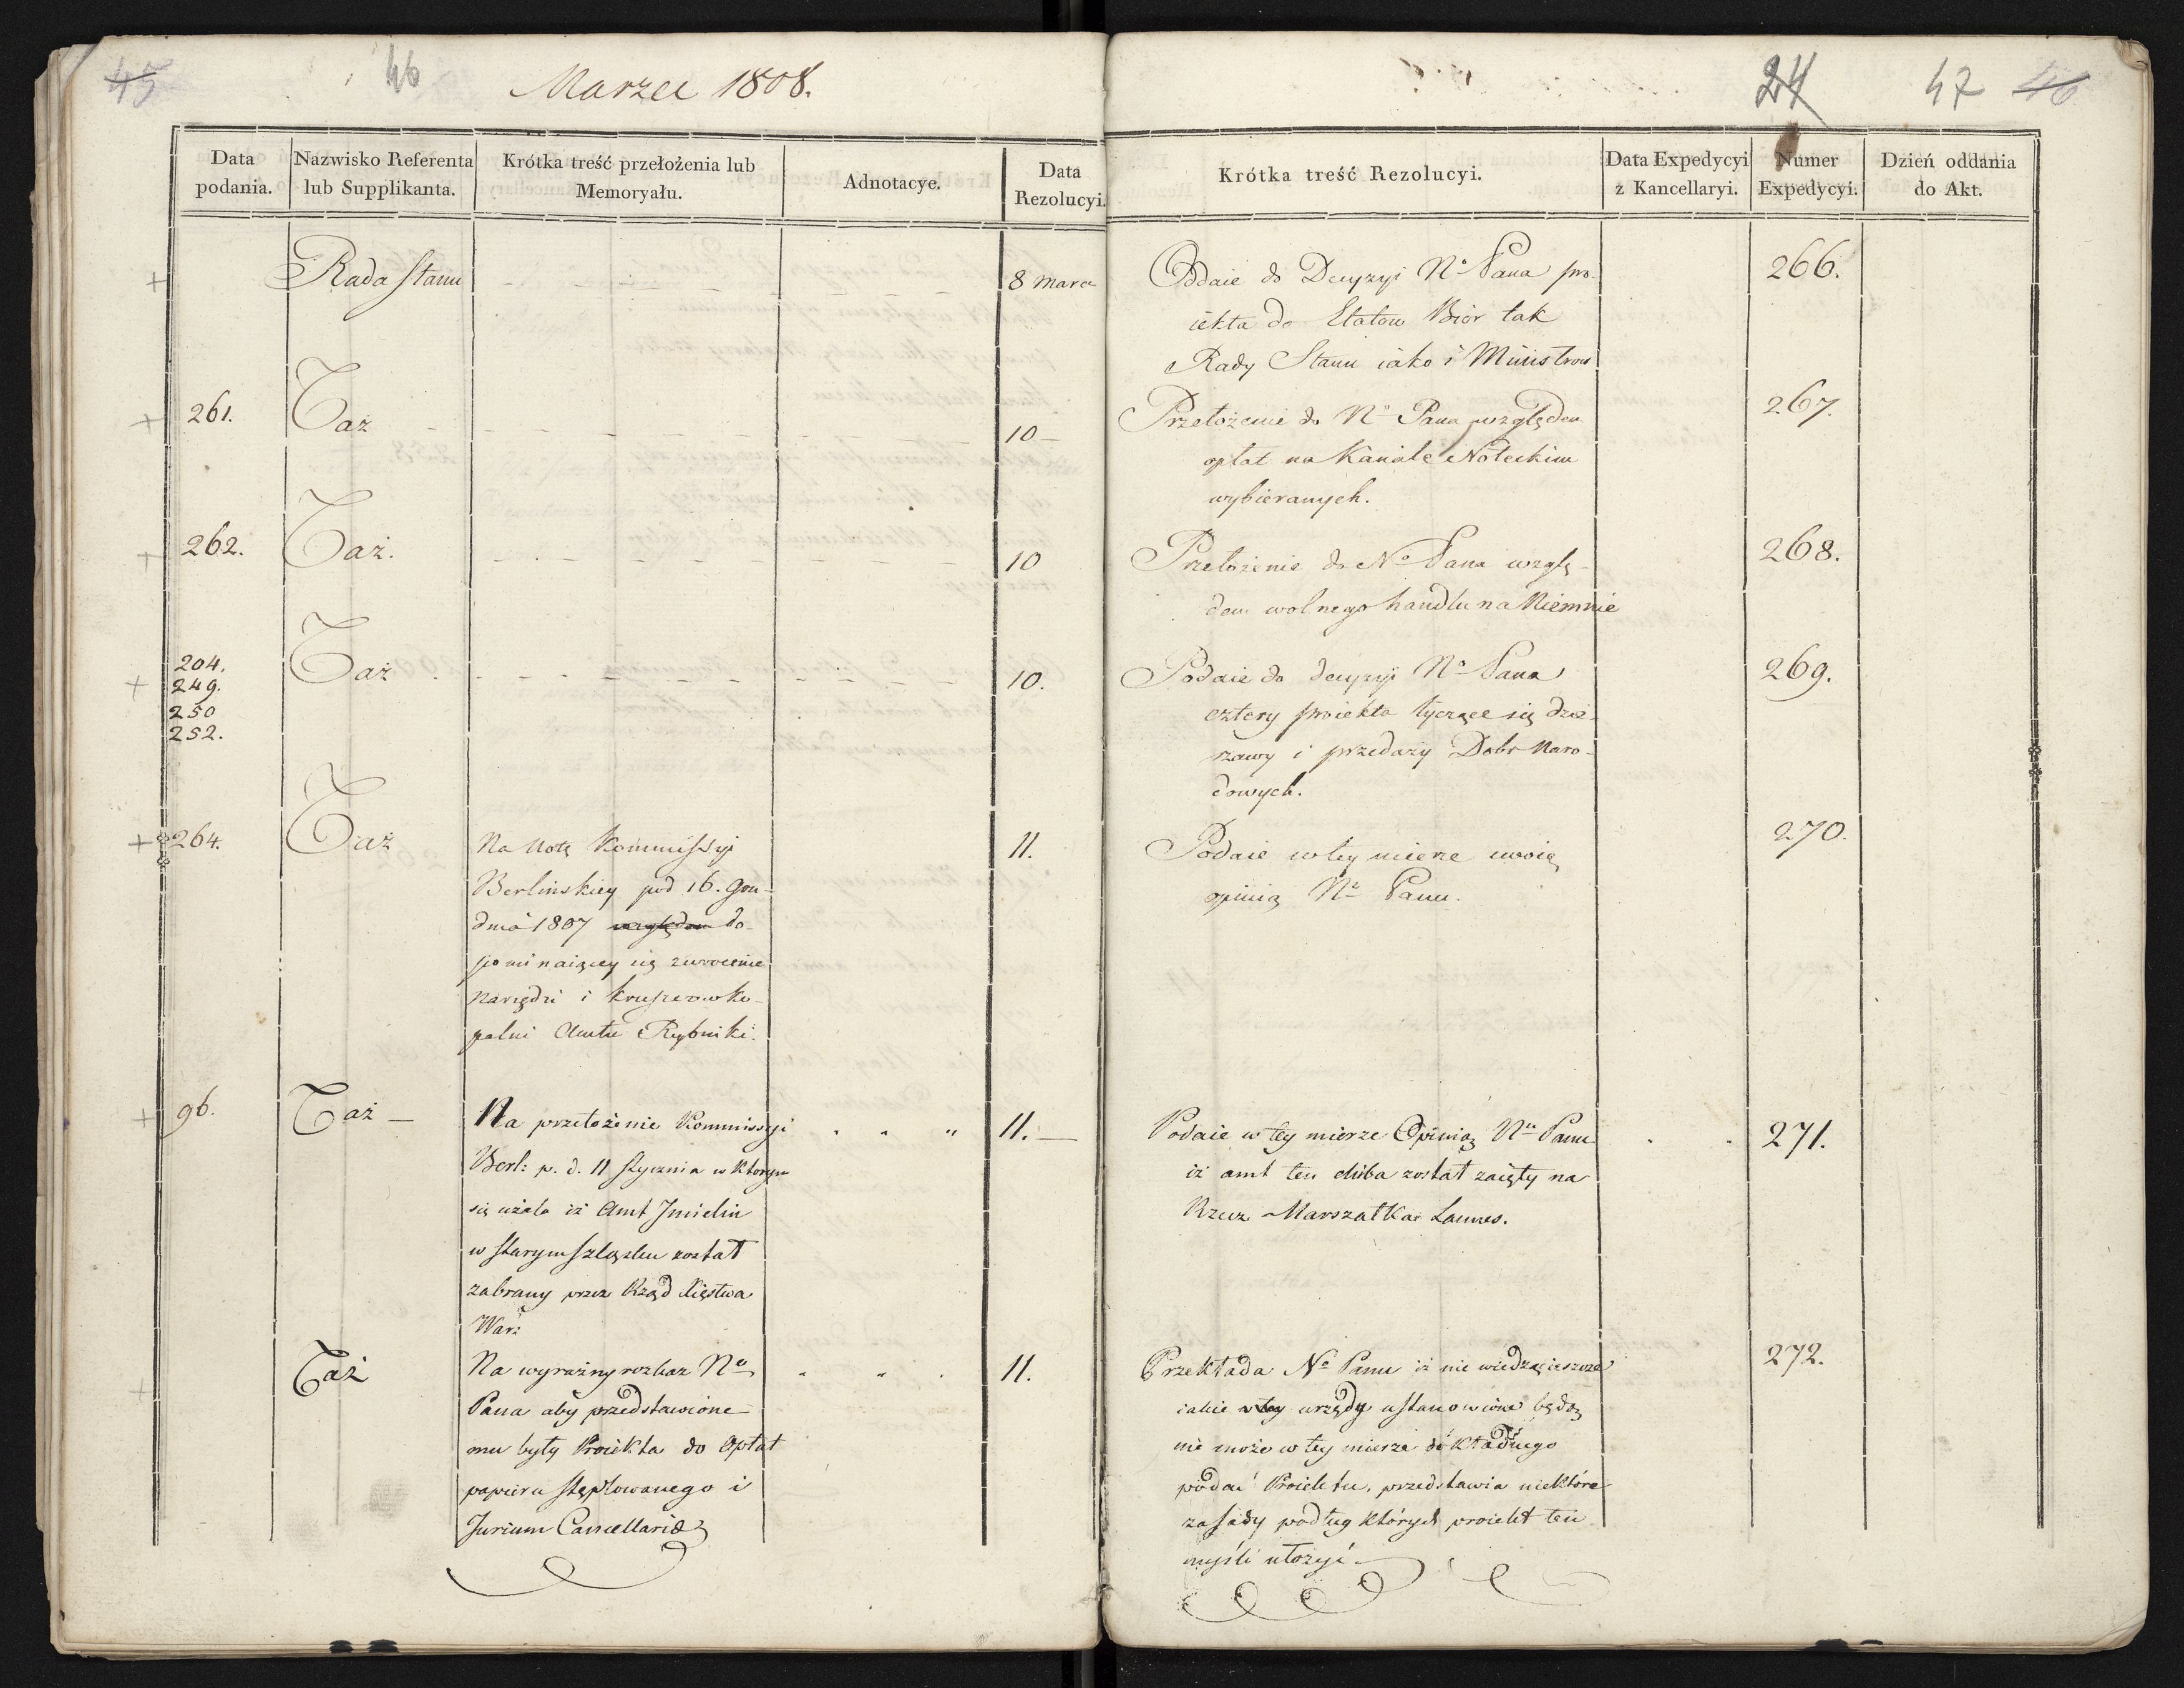 45 46 Marzec 1808.
24 47 46
Data podania.
Nazwisko Referenta lub Supplikanta.
Krótka treść przełożenia lub Memoryału.
Adnotacye.
Data Rezolucyi.
Krótka treść Rezolucyi.
Data Expedycyi z Kancellaryi.
Numer Expedycyi.
Dzień oddania do Akt.
Rada Stanu
8 Marca
Oddaie do Decyzyi N° Pana pro-
iekta do Etatow Biór tak
Rady Stanu iako i Ministrow
266.
261.
Taż
10 –
Przełożenie do N° Pana względem
opłat na Kanale Noteckim
wybieranych.
267.
262.
Taż.
10
Przełożenie do N° Pana wzglę-
dem wolnego handlu na Niemnie
268.
204.
249.
250
252.
Taż
10.
Podaie do decyzyi N° Pana
cztery proiekta tyczące się dzier-
żawy i przedaży Dobr Naro-
dowych.
269.
264.
Taż
Na Notę Kommissyi
Berlinskiey pod 16. Gru-
dnia 1807 względem do-
pominaiącey się zwrocenie
narzędzi i kruszcow ko-
palni Amtu Rybniki.
11.
Podaie w tey mierze swoię
opinią N° Panu.
270.
96.
Taż –
Na przełożenie Kommissyi
Berl: p. d. 11 Stycznia w ktorym
się użala iż Amt Imielin
w starym Szląsku został
zabrany przez Rząd Xięstwa
War:
11. –
Podaie w tey mierze Opinią N° Panu
iż amt ten chiba został zaięty na
Rzecz Marszałka Lannes.
271.
Taż
Na wyraźny rozkaz N°
Pana aby przedstawione
mu były Proiekta do Opłat
papieru stęplowanego i
Jurium Cancellariae
11.
Przekłada N° Panu iż nie wiedząc ieszcze
iakie w tey urzędy ustanowione będą
nie może w tey mierze dokładnego
podać Proiektu, przedstawia niektóre
zasady podług których proiekt ten
myśli ułożyć.
272.